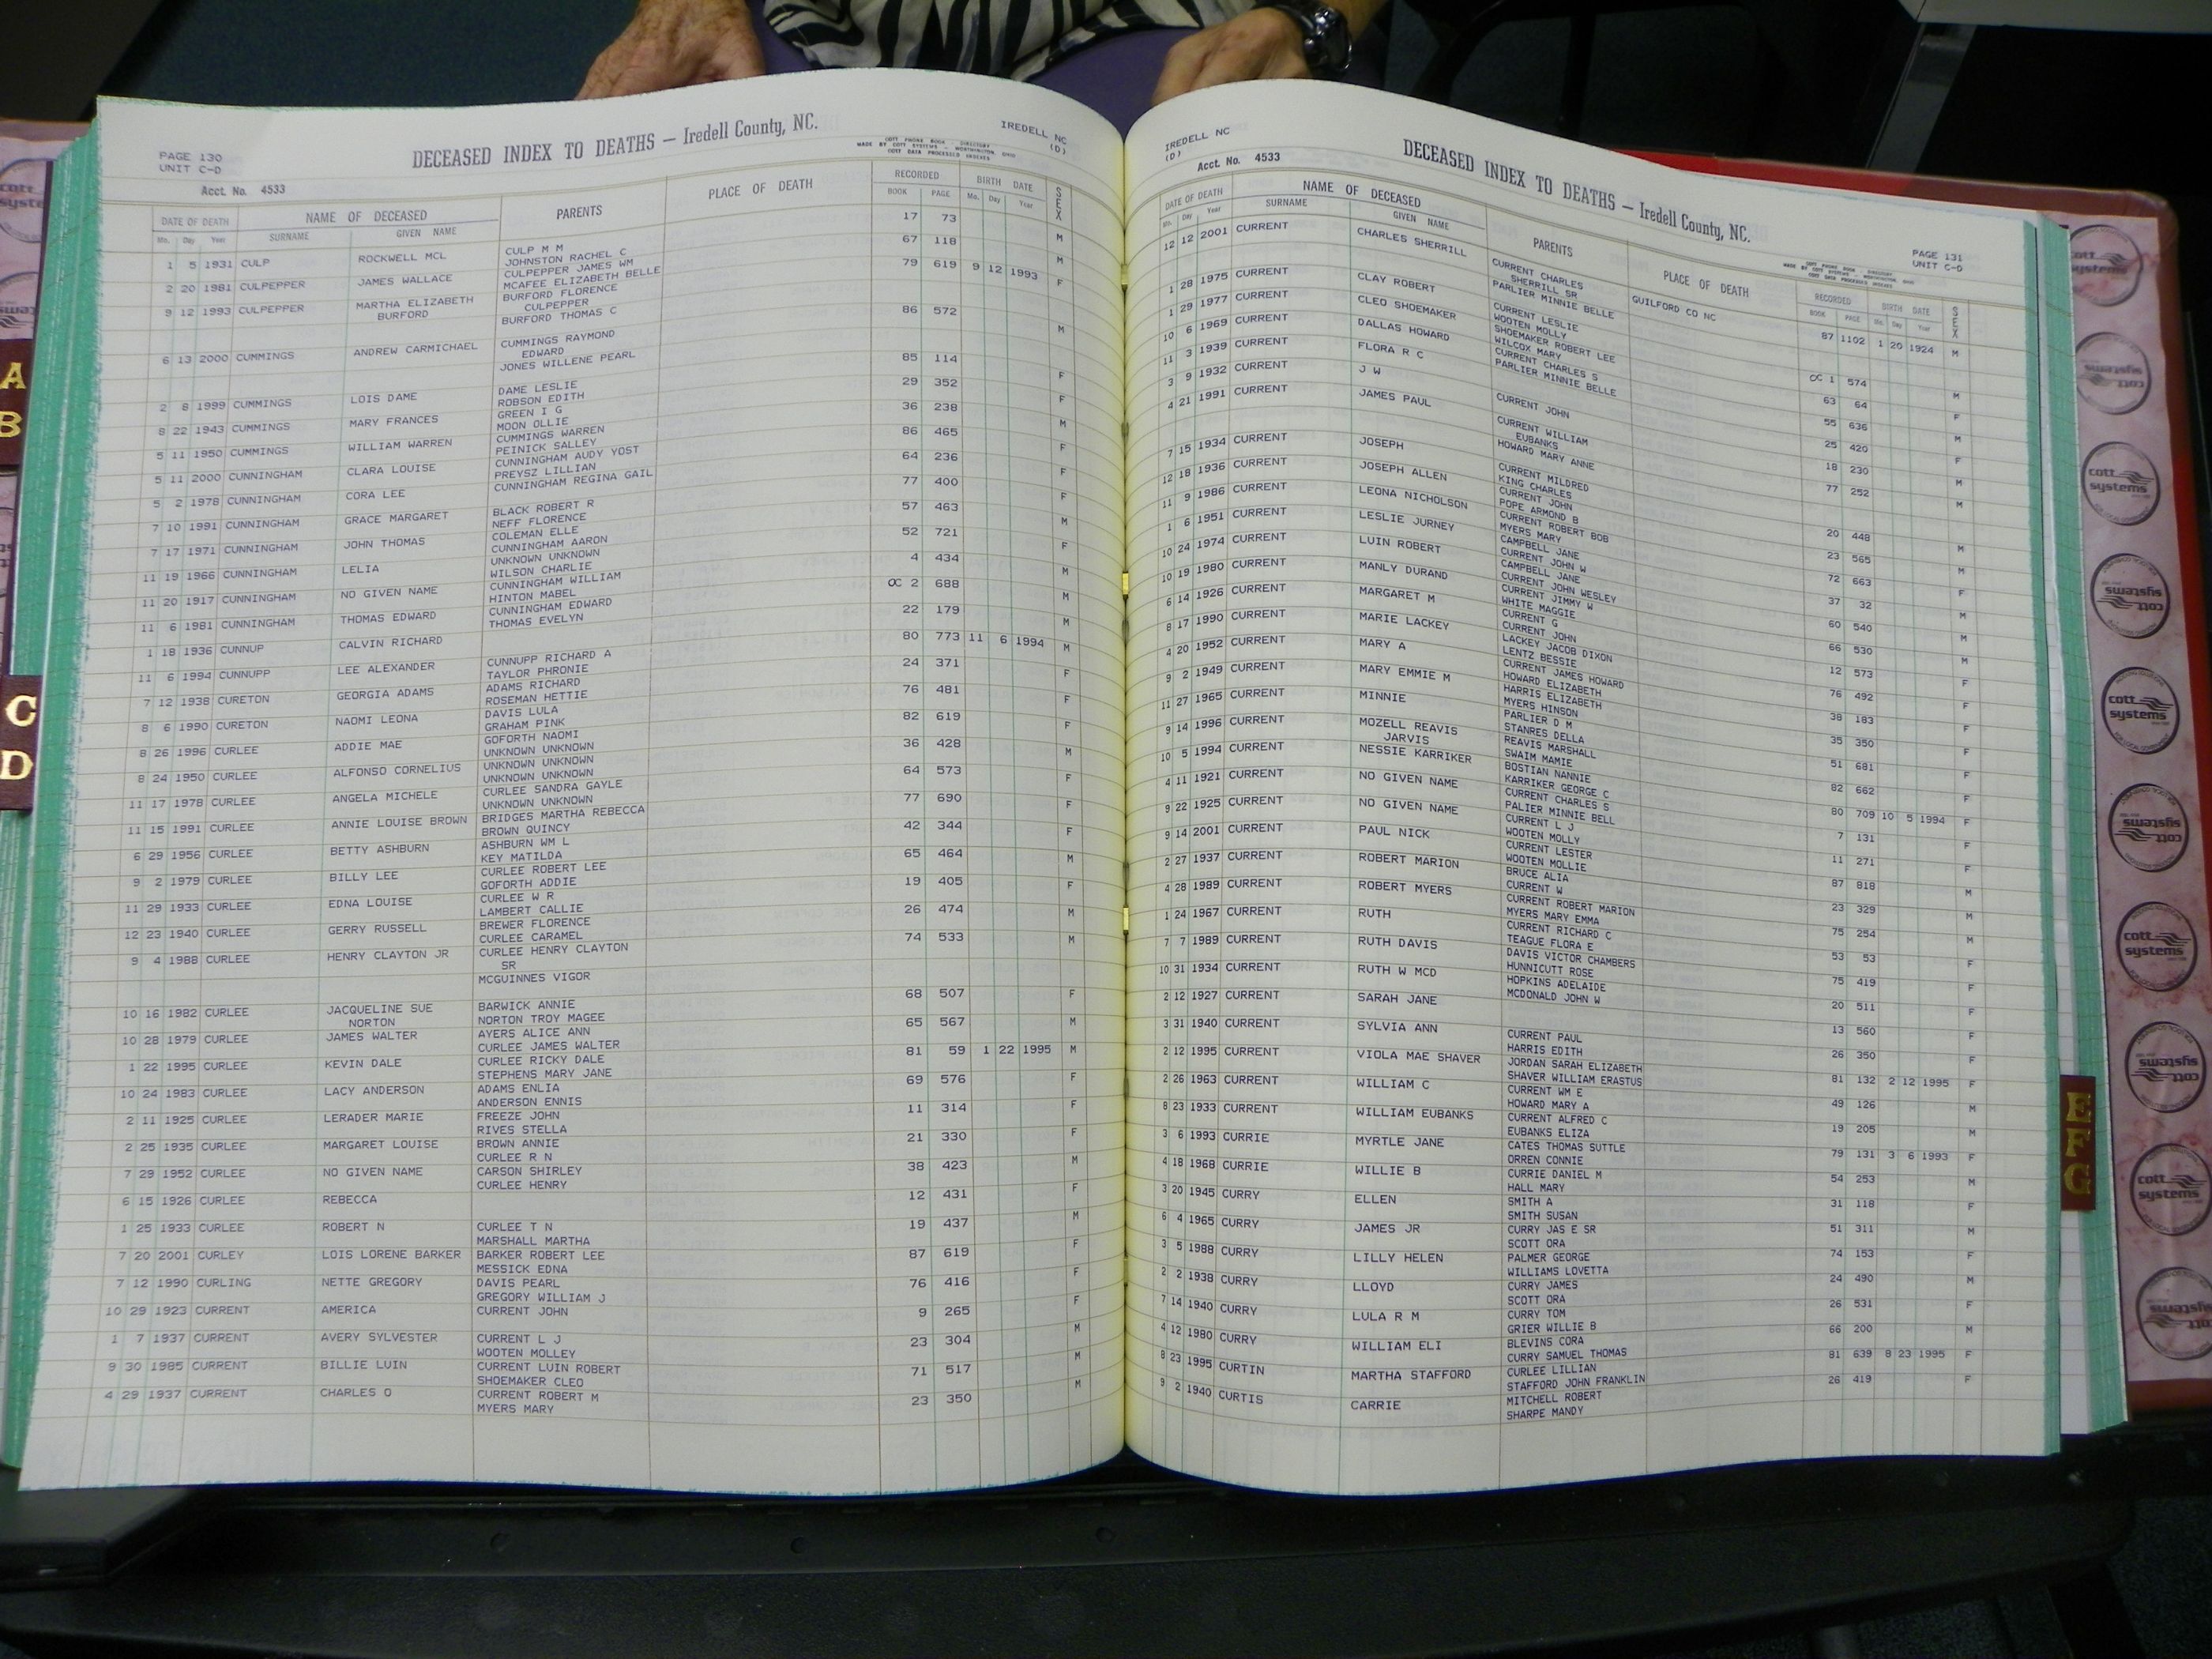 PAGE 130
UNIT C-D
Acct. No. 4533
DECEASED INDEX TO DEATHS — Iredell County, NC.
COTT PHONE BOOK - DIRECTORY
MADE BY COTT SYSTEMS - WORTHINGTON, OHIO
COTT DATA PROCESSED INDEXES
IREDELL NC
(D)
DATE OF DEATH NAME OF DECEASED PARENTS PLACE OF DEATH RECORDED BIRTH DATE SEX
Mo. Day Year SURNAME GIVEN NAME BOOK PAGE Mo. Day Year
1 5 1931 CULP ROCKWELL MCL CULP M M 17 73 M
JOHNSTON RACHEL C
2 20 1981 CULPEPPER JAMES WALLACE CULPEPPER JAMES WM 67 118 M
MCAFEE ELIZABETH BELLE
9 12 1993 CULPEPPER MARTHA ELIZABETH BURFORD FLORENCE 79 619 9 12 1993 F
BURFORD CULPEPPER
BURFORD THOMAS C
6 13 2000 CUMMINGS ANDREW CARMICHAEL CUMMINGS RAYMOND 86 572 M
EDWARD
JONES WILLENE PEARL
2 8 1999 CUMMINGS LOIS DAME DAME LESLIE 85 114 F
ROBSON EDITH
8 22 1943 CUMMINGS MARY FRANCES GREEN I G 29 352 F
MOON OLLIE
5 11 1950 CUMMINGS WILLIAM WARREN CUMMINGS WARREN 36 238 M
PEINICK SALLEY
5 11 2000 CUNNINGHAM CLARA LOUISE CUNNINGHAM AUDY YOST 86 465 F
PREYSZ LILLIAN
5 2 1978 CUNNINGHAM CORA LEE CUNNINGHAM REGINA GAIL 64 236 F
7 10 1991 CUNNINGHAM GRACE MARGARET BLACK ROBERT R 77 400 F
NEFF FLORENCE
7 17 1971 CUNNINGHAM JOHN THOMAS COLEMAN ELLE 57 463 M
CUNNINGHAM AARON
11 19 1966 CUNNINGHAM LELIA UNKNOWN UNKNOWN 52 721 F
WILSON CHARLIE
11 20 1917 CUNNINGHAM NO GIVEN NAME CUNNINGHAM WILLIAM 4 434 M
HINTON MABEL
11 6 1981 CUNNINGHAM THOMAS EDWARD CUNNINGHAM EDWARD OC 2 688 M
THOMAS EVELYN
1 18 1936 CUNNUP CALVIN RICHARD 22 179 M
11 6 1994 CUNNUPP LEE ALEXANDER CUNNUPP RICHARD A 80 773 11 6 1994 M
TAYLOR PHRONIE
7 12 1938 CURETON GEORGIA ADAMS ADAMS RICHARD 24 371 F
ROSEMAN HETTIE
8 6 1990 CURETON NAOMI LEONA DAVIS LULA 76 481 F
GRAHAM PINK
8 26 1996 CURLEE ADDIE MAE GOFORTH NAOMI 82 619 F
UNKNOWN UNKNOWN
8 24 1950 CURLEE ALFONSO CORNELIUS UNKNOWN UNKNOWN 36 428 M
UNKNOWN UNKNOWN
11 17 1978 CURLEE ANGELA MICHELE CURLEE SANDRA GAYLE 64 573 F
UNKNOWN UNKNOWN
11 15 1991 CURLEE ANNIE LOUISE BROWN BRIDGES MARTHA REBECCA 77 690 F
BROWN QUINCY
6 29 1956 CURLEE BETTY ASHBURN ASHBURN WM L 42 344 F
KEY MATILDA
9 2 1979 CURLEE BILLY LEE CURLEE ROBERT LEE 65 464 M
GOFORTH ADDIE
11 29 1933 CURLEE EDNA LOUISE CURLEE W R 19 405 F
LAMBERT CALLIE
12 23 1940 CURLEE GERRY RUSSELL BREWER FLORENCE 26 474 M
CURLEE CARAMEL
9 4 1988 CURLEE HENRY CLAYTON JR CURLEE HENRY CLAYTON 74 533 M
SR
MCGUINNES VIGOR
10 16 1982 CURLEE JACQUELINE SUE BARWICK ANNIE 68 507 F
NORTON NORTON TROY MAGEE
10 28 1979 CURLEE JAMES WALTER AYERS ALICE ANN 65 567 M
CURLEE JAMES WALTER
1 22 1995 CURLEE KEVIN DALE CURLEE RICKY DALE 81 59 1 22 1995 M
STEPHENS MARY JANE
10 24 1983 CURLEE LACY ANDERSON ADAMS ENLIA 69 576 F
ANDERSON ENNIS
2 11 1925 CURLEE LERADER MARIE FREEZE JOHN 11 314 F
RIVES STELLA
2 25 1935 CURLEE MARGARET LOUISE BROWN ANNIE 21 330 F
CURLEE R N
7 29 1952 CURLEE NO GIVEN NAME CARSON SHIRLEY 38 423 M
CURLEE HENRY
6 15 1926 CURLEE REBECCA 12 431 F
1 25 1933 CURLEE ROBERT N CURLEE T N 19 437 M
MARSHALL MARTHA
7 20 2001 CURLEY LOIS LORENE BARKER BARKER ROBERT LEE 87 619 F
MESSICK EDNA
7 12 1990 CURLING NETTE GREGORY DAVIS PEARL 76 416 F
GREGORY WILLIAM J
10 29 1923 CURRENT AMERICA CURRENT JOHN 9 265 F
1 7 1937 CURRENT AVERY SYLVESTER CURRENT L J 23 304 M
WOOTEN MOLLEY
9 30 1985 CURRENT BILLIE LUIN CURRENT LUIN ROBERT 71 517 M
SHOEMAKER CLEO
4 29 1937 CURRENT CHARLES O CURRENT ROBERT M 23 350 M
MYERS MARY
IREDELL NC
(D)
Acct. No. 4533
DECEASED INDEX TO DEATHS — Iredell County, NC.
COTT PHONE BOOK - DIRECTORY
MADE BY COTT SYSTEMS - WORTHINGTON, OHIO
COTT DATA PROCESSED INDEXES
PAGE 131
UNIT C-D
DATE OF DEATH NAME OF DECEASED PARENTS PLACE OF DEATH RECORDED BIRTH DATE SEX
Mo. Day Year SURNAME GIVEN NAME BOOK PAGE Mo. Day Year
12 12 2001 CURRENT CHARLES SHERRILL CURRENT CHARLES GUILFORD CO NC 87 1102 1 20 1924 M
SHERRILL SR
PARLIER MINNIE BELLE
1 28 1975 CURRENT CLAY ROBERT CURRENT LESLIE OC 1 574 M
WOOTEN MOLLY
1 29 1977 CURRENT CLEO SHOEMAKER SHOEMAKER ROBERT LEE 63 64 F
WILCOX MARY
10 6 1969 CURRENT DALLAS HOWARD CURRENT CHARLES S 55 636 M
PARLIER MINNIE BELLE
11 3 1939 CURRENT FLORA R C 25 420 F
3 9 1932 CURRENT J W CURRENT JOHN 18 230 M
4 21 1991 CURRENT JAMES PAUL CURRENT WILLIAM 77 252 M
EUBANKS
HOWARD MARY ANNE
7 15 1934 CURRENT JOSEPH CURRENT MILDRED 20 448 M
KING CHARLES
12 18 1936 CURRENT JOSEPH ALLEN CURRENT JOHN 23 565 M
POPE ARMOND B
11 9 1986 CURRENT LEONA NICHOLSON CURRENT ROBERT BOB 72 663 F
MYERS MARY
1 6 1951 CURRENT LESLIE JURNEY CAMPBELL JANE 37 32 M
CURRENT JOHN W
10 24 1974 CURRENT LUIN ROBERT CAMPBELL JANE 60 540 M
CURRENT JOHN WESLEY
10 19 1980 CURRENT MANLY DURAND CURRENT JIMMY W 66 530 M
WHITE MAGGIE
6 14 1926 CURRENT MARGARET M CURRENT G 12 573 F
CURRENT JOHN
8 17 1990 CURRENT MARIE LACKEY LACKEY JACOB DIXON 76 492 F
LENTZ BESSIE
4 20 1952 CURRENT MARY A CURRENT JAMES HOWARD 38 183 F
HOWARD ELIZABETH
9 2 1949 CURRENT MARY EMMIE M HARRIS ELIZABETH 35 350 F
MYERS HINSON
11 27 1965 CURRENT MINNIE PARLIER D M 51 681 F
STANRES DELLA
9 14 1996 CURRENT MOZELL REAVIS REAVIS MARSHALL 82 662 F
JARVIS SWAIM MAMIE
10 5 1994 CURRENT NESSIE KARRIKER BOSTIAN NANNIE 80 709 10 5 1994 F
KARRIKER GEORGE C
4 11 1921 CURRENT NO GIVEN NAME CURRENT CHARLES S 7 131 F
PALIER MINNIE BELL
9 22 1925 CURRENT NO GIVEN NAME CURRENT L J 11 271 F
WOOTEN MOLLY
9 14 2001 CURRENT PAUL NICK CURRENT LESTER 87 818 M
WOOTEN MOLLIE
2 27 1937 CURRENT ROBERT MARION BRUCE ALIA 23 329 M
CURRENT W
4 28 1989 CURRENT ROBERT MYERS CURRENT ROBERT MARION 75 254 M
MYERS MARY EMMA
1 24 1967 CURRENT RUTH CURRENT RICHARD C 53 53 F
TEAGUE FLORA E
7 7 1989 CURRENT RUTH DAVIS DAVIS VICTOR CHAMBERS 75 419 F
HUNNICUTT ROSE
10 31 1934 CURRENT RUTH W MCD HOPKINS ADELAIDE 20 511 F
MCDONALD JOHN W
2 12 1927 CURRENT SARAH JANE 13 560 F
3 31 1940 CURRENT SYLVIA ANN CURRENT PAUL 26 350 F
HARRIS EDITH
2 12 1995 CURRENT VIOLA MAE SHAVER JORDAN SARAH ELIZABETH 81 132 2 12 1995 F
SHAVER WILLIAM ERASTUS
2 26 1963 CURRENT WILLIAM C CURRENT WM E 49 126 M
HOWARD MARY A
8 23 1933 CURRENT WILLIAM EUBANKS CURRENT ALFRED C 19 205 M
EUBANKS ELIZA
3 6 1993 CURRIE MYRTLE JANE CATES THOMAS SUTTLE 79 131 3 6 1993 F
ORREN CONNIE
4 18 1968 CURRIE WILLIE B CURRIE DANIEL M 54 253 M
HALL MARY
3 20 1945 CURRY ELLEN SMITH A 31 118 F
SMITH SUSAN
6 4 1965 CURRY JAMES JR CURRY JAS E SR 51 311 M
SCOTT ORA
3 5 1988 CURRY LILLY HELEN PALMER GEORGE 74 153 F
WILLIAMS LOVETTA
2 2 1938 CURRY LLOYD CURRY JAMES 24 490 M
SCOTT ORA
7 14 1940 CURRY LULA R M CURRY TOM 26 531 F
GRIER WILLIE B
4 12 1980 CURRY WILLIAM ELI BLEVINS CORA 66 200 M
CURRY SAMUEL THOMAS
8 23 1995 CURTIN MARTHA STAFFORD CURLEE LILLIAN 81 639 8 23 1995 F
STAFFORD JOHN FRANKLIN
9 2 1940 CURTIS CARRIE MITCHELL ROBERT 26 419 F
SHARPE MANDY
A
B
C
D
E
F
G
cott systems
cott systems
cott systems
cott systems
cott systems
cott systems